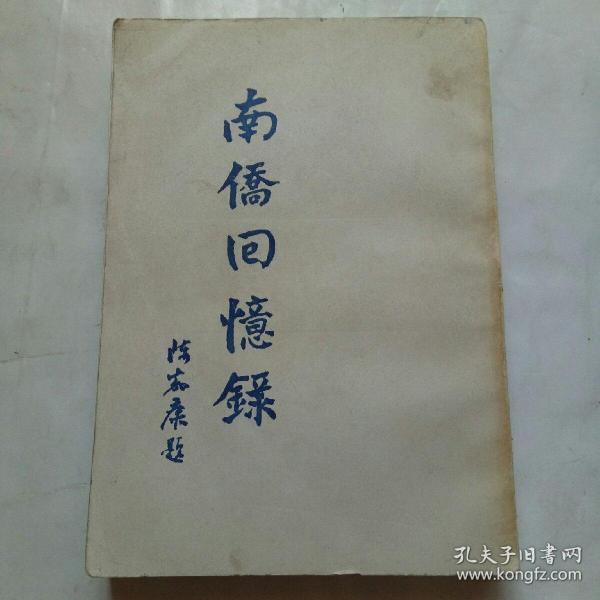 南僑回憶錄
陈嘉庚題
孔夫子旧書网
www.kongfz.com